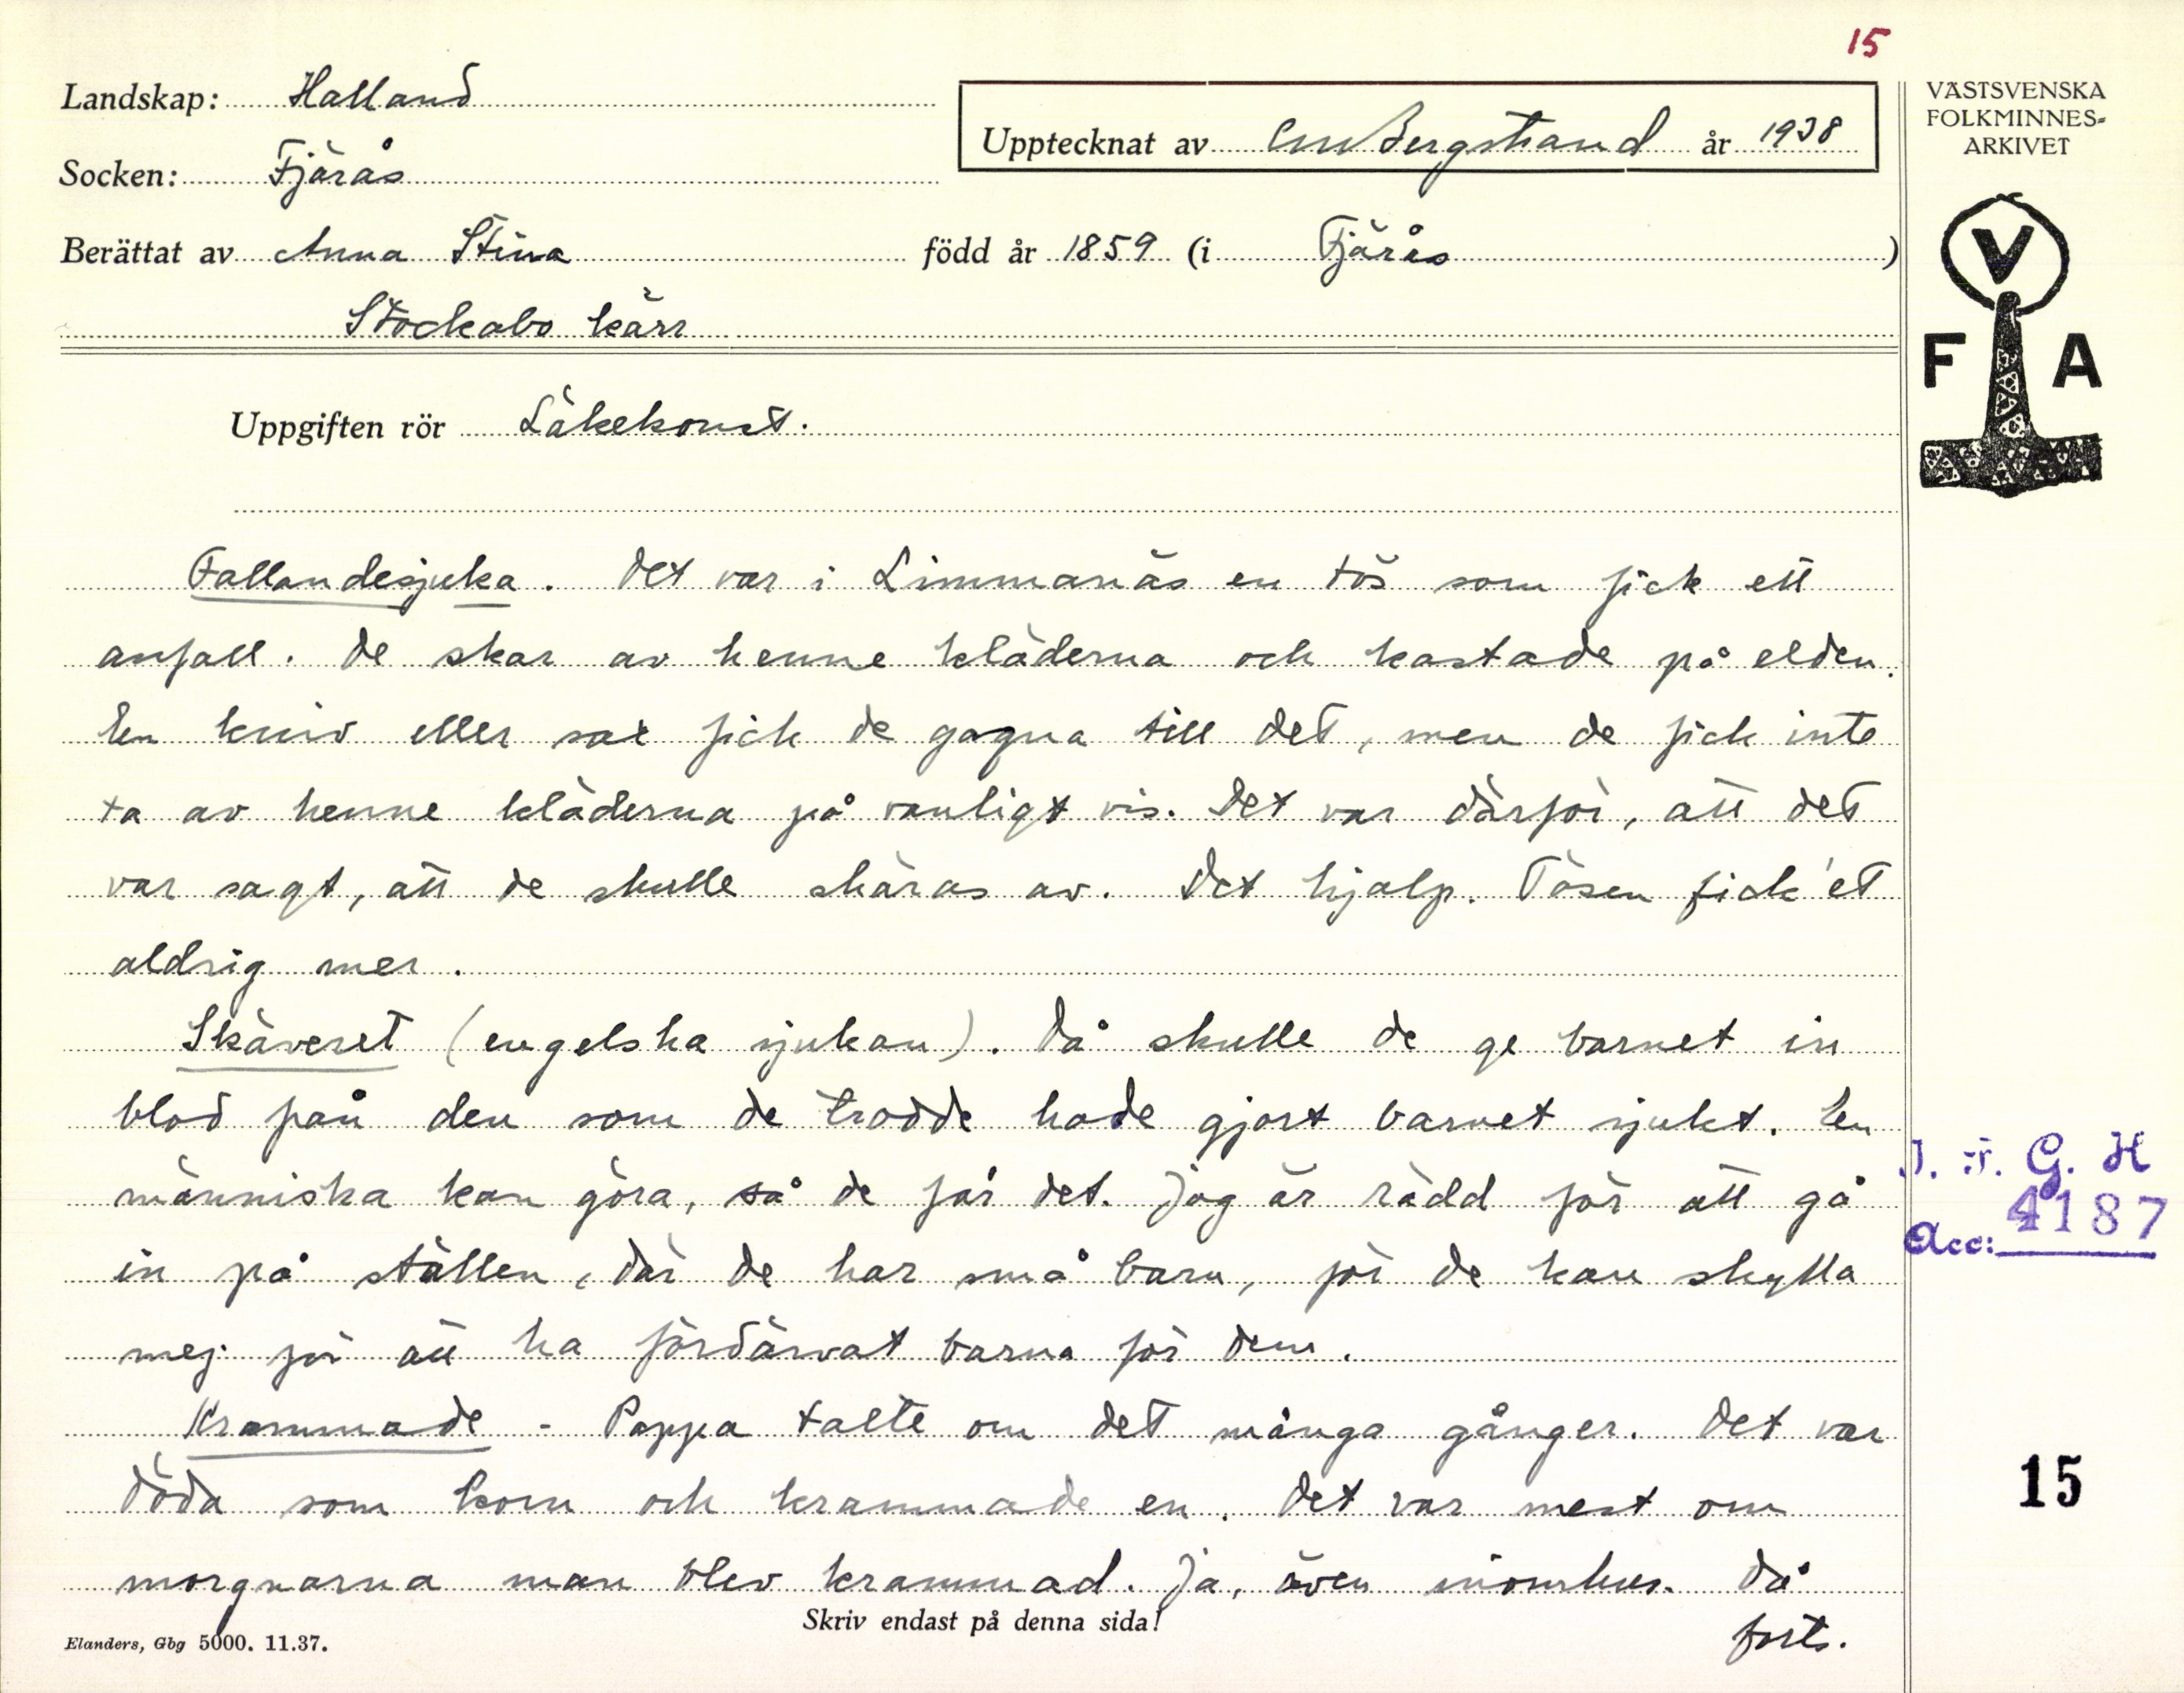 15
Landskap: Halland
Socken: Fjärås
Upptecknat av C M Bergstrand år 1938
Berättat av Anna Stina född år 1859 (i Fjärås)
Stockabo kärr
Uppgiften rör Läkekonst.
Fallandesjuka. Det var i Limmanäs en tös som fick ett
anfall. De skar av henne kläderna och kastade på elden.
En kniv eller sax fick de gagna till det, men de fick inte
ta av henne kläderna på vanligt vis. Det var därför, att det
var sagt, att de skulle skäras av. Det hjalp. Tösen fick 'et
aldrig mer.
Skäveret (engelska sjukan). Då skulle de ge barnet in
blod från den som de trodde hade gjort barnet sjukt. En
människa kan göra, så de får det. Jag är rädd för att gå
in på ställen, där de har små barn, för de kan skylla
mej för att ha fördärvat barna för dem.
Krammade - Pappa talte om det många gånger. Det var
döda som kom och krammade en. Det var mest om
morgnarna man blev krammad. Ja, även inomhus. Då
forts.
Skriv endast på denna sida!
Elanders, Gbg 5000. 11.37.
VÄSTSVENSKA
FOLKMINNES-
ARKIVET
V
F A
I. F. G. H
Acc: 4187
15